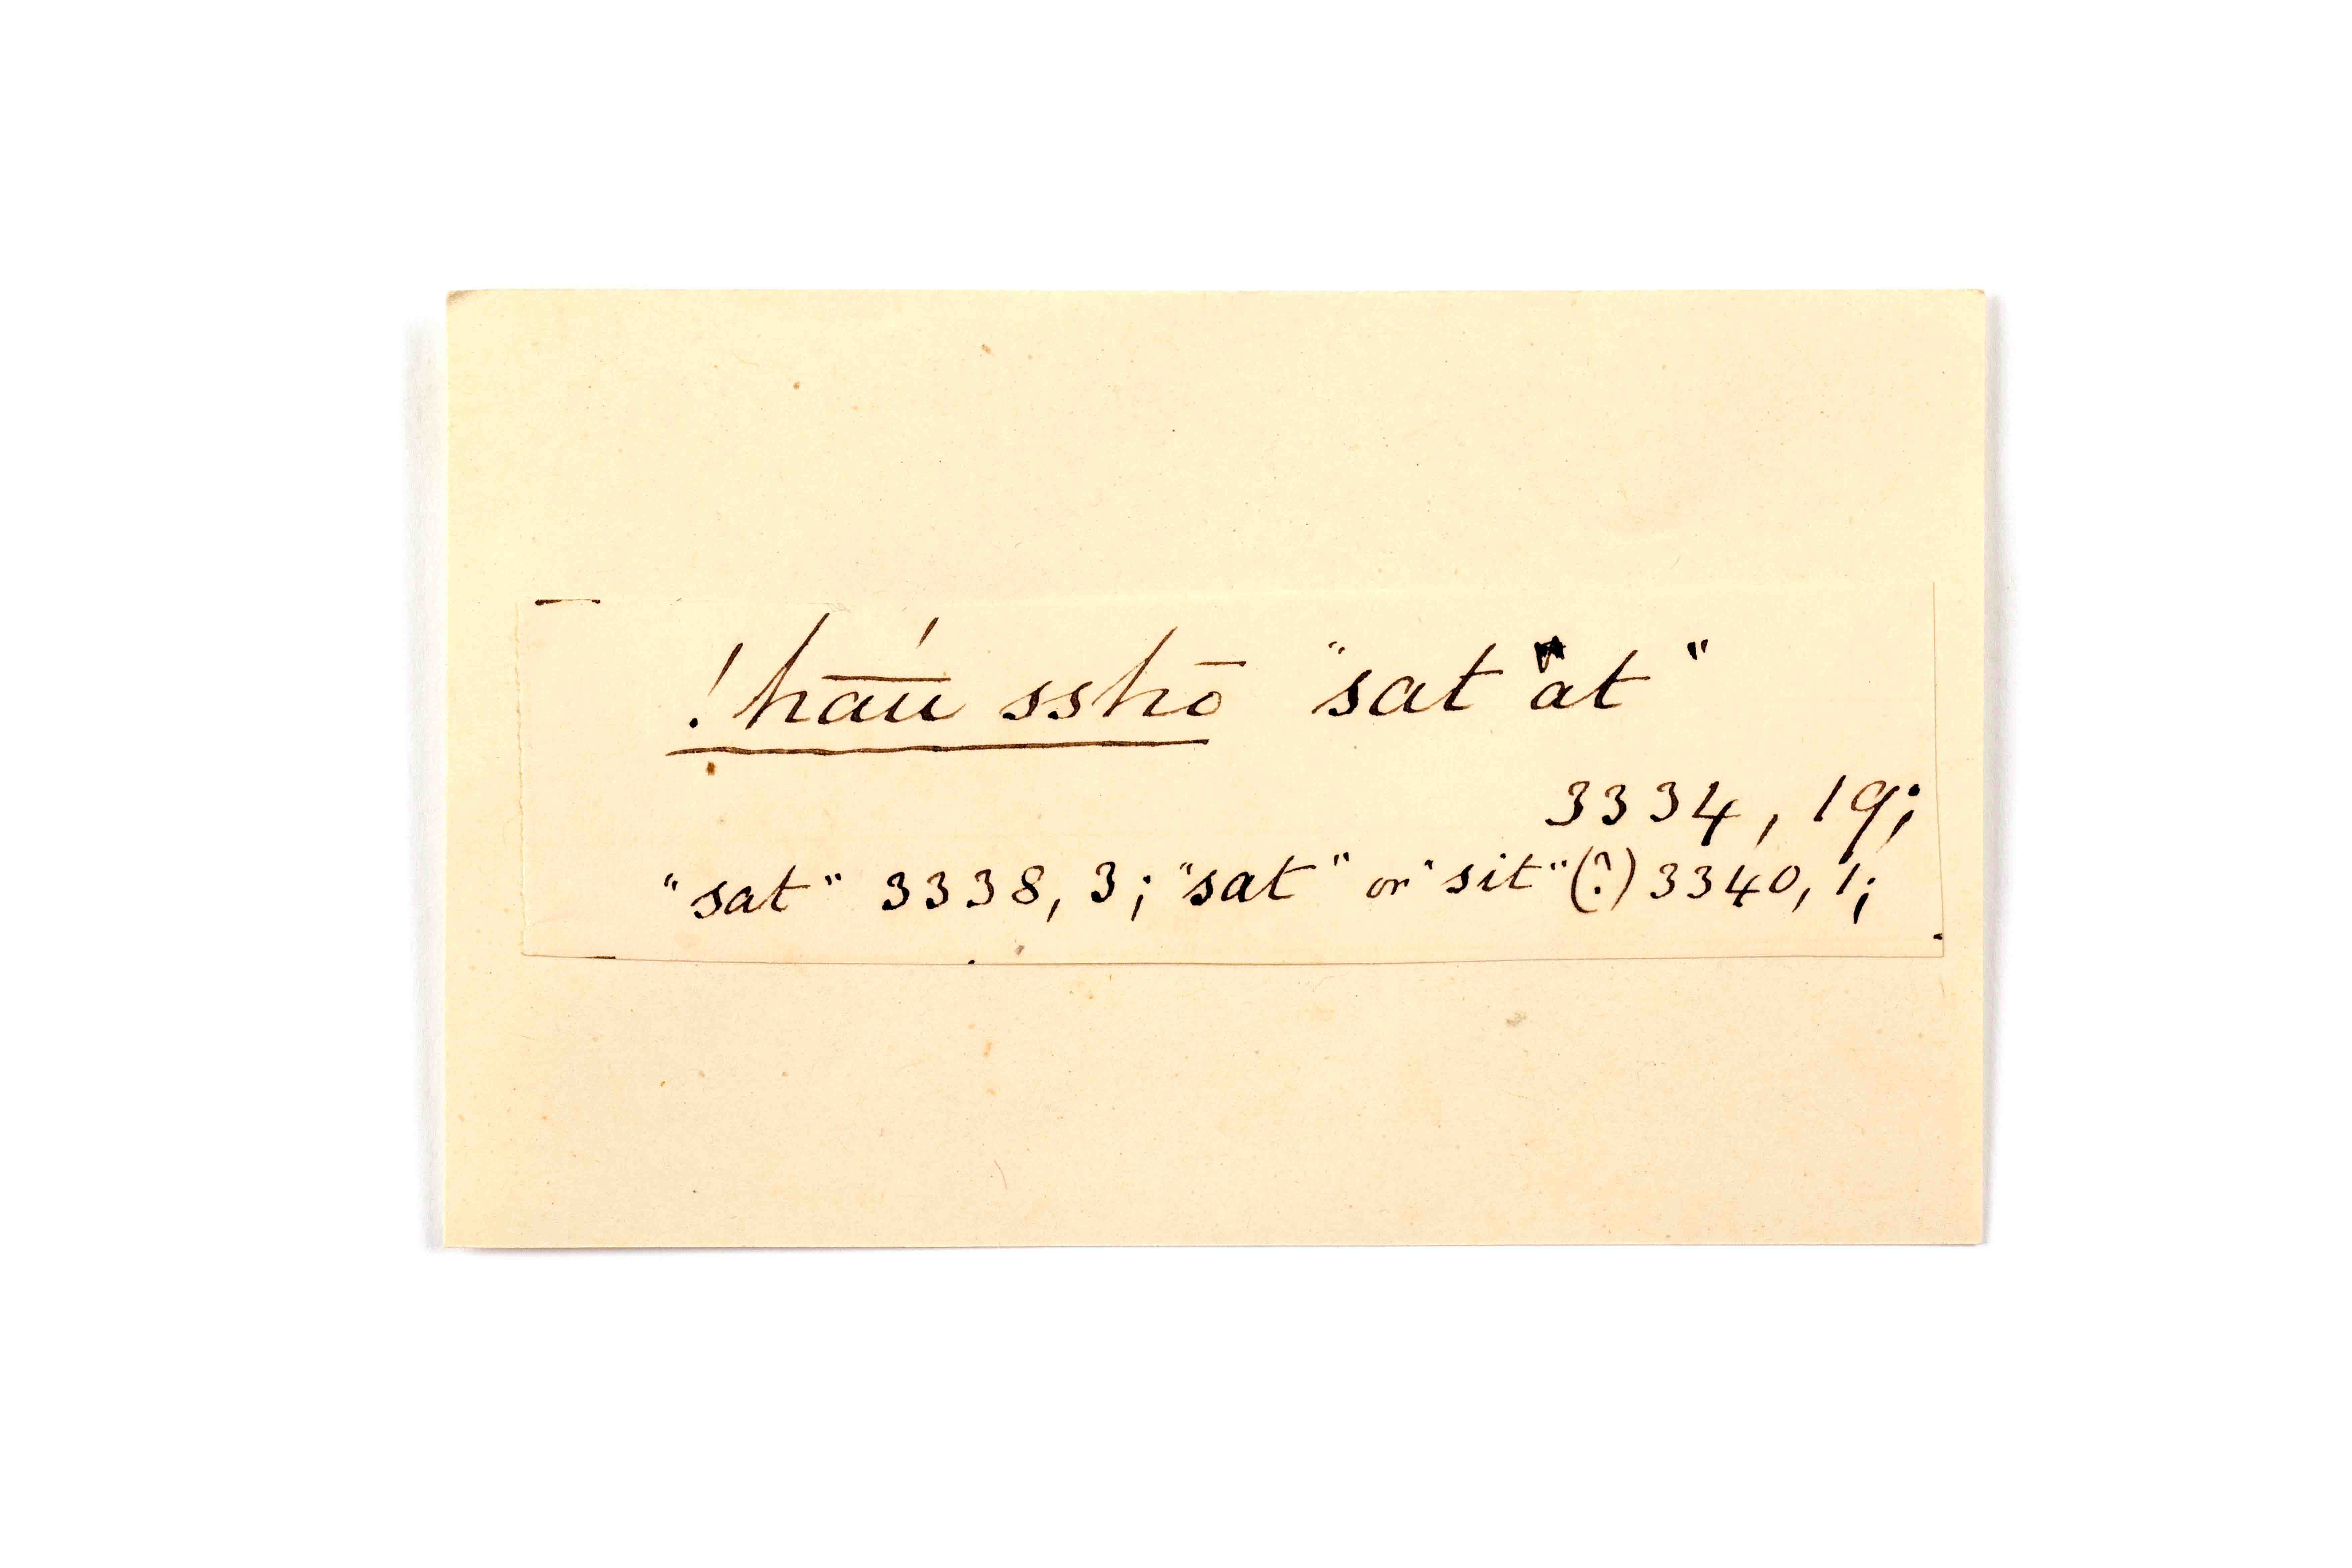 !hā́ū sshō "sat at"
3334, 19;
"sat" 3338, 3; "sat" or "sit" (?) 3340, 1;